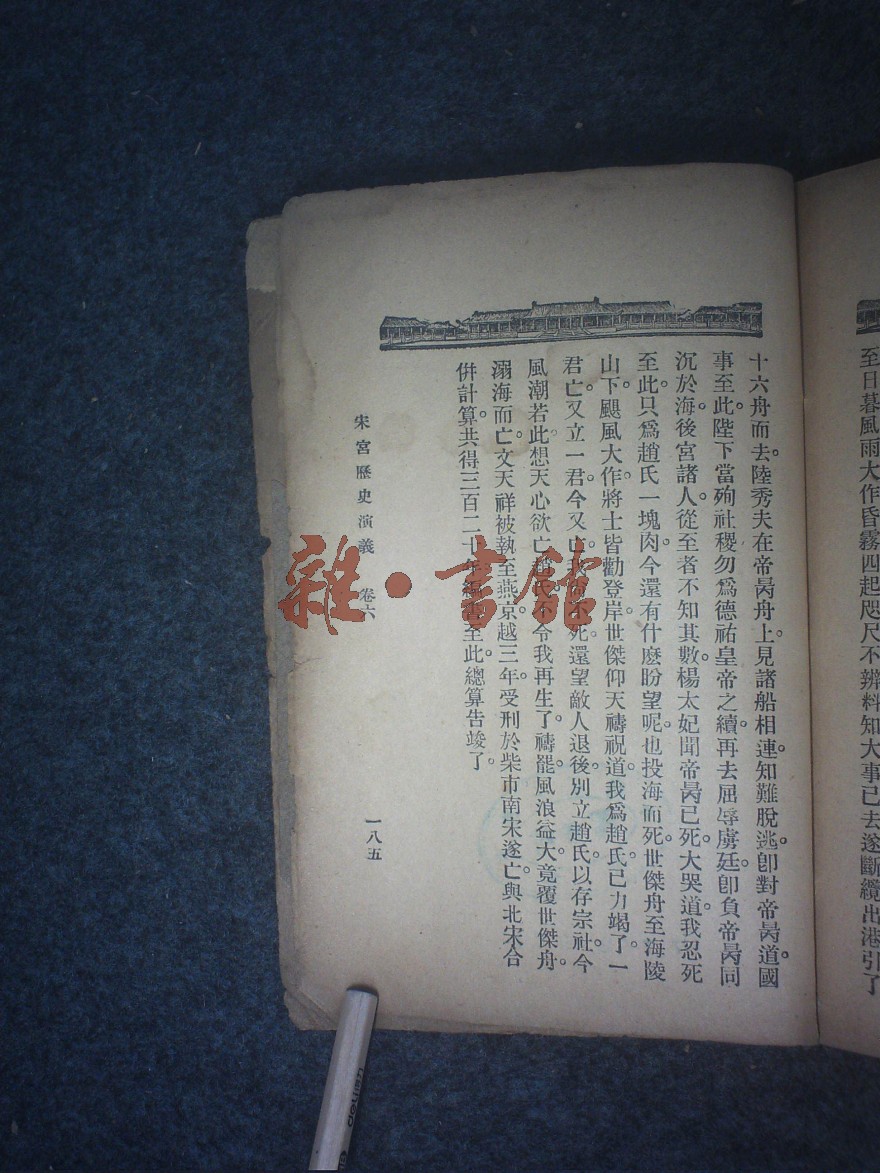 至日暮風雨大作昏霧四起咫尺不辨料知大事已去遂斷纜出港引了
十六舟而去。陸秀夫在帝昺舟上。見諸船相連。知難脫逃。卽對帝昺道。國
事至此。陛下當殉社稷。勿爲德祐皇帝之續。再去屈辱虜廷。卽負帝昺同
沉於海。後宮諸人。從至者不知其數。楊太妃聞帝昺已死。大哭道。我忍死
至此。只爲趙氏一塊肉。今還有什麽盼望呢。也投海而死。世傑舟至海陵
山下。颶風大作。將士皆勸登岸。世傑仰天禱祝道。我爲趙氏。已力竭了。一
君亡。又立一君。今又亡。我尙不死。還望敵人退後。別立趙氏。以存宗社。今
風潮若此。想天心欲亡趙氏。不令我再生了。禱罷。風浪益大。竟覆世傑舟。
溺海而亡。文天祥被執至燕京。越三年。受刑於柴市。南宋遂亡。與北宋合
倂計算。共得三百二十年。編書至此。總算告竣了。
宋宮歷史演義 卷六 一八五
雜·書館
deli